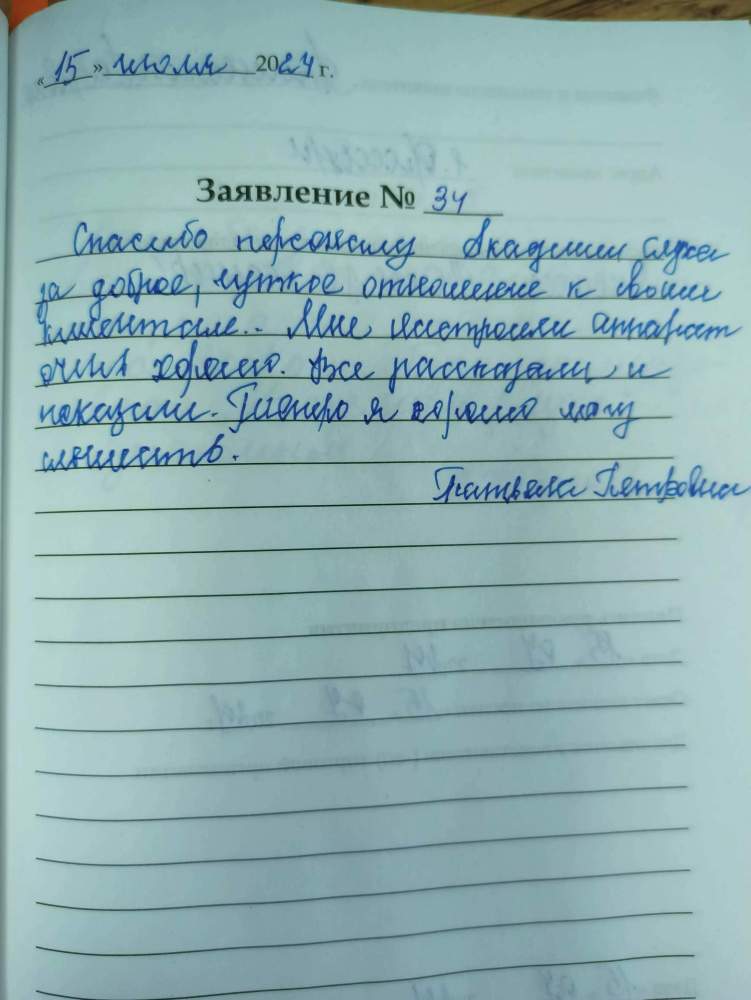 «15» июля 2024 г.
Заявление № 34
Спасибо персоналу Академии слуха
за доброе, чуткое отношение к своим
клиентам.. Мне настроили аппарат
очень хорошо. Все рассказали и
показали. Теперь я хорошо могу
слышать.
Татьяна Петровна